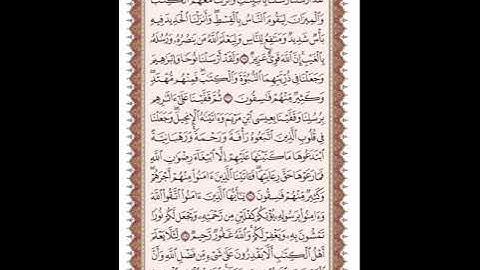 لَقَدۡ أَرۡسَلۡنَا رُسُلَنَا بِٱلۡبَيِّنَٰتِ وَأَنزَلۡنَا مَعَهُمُ ٱلۡكِتَٰبَ
وَٱلۡمِيزَانَ لِيَقُومَ ٱلنَّاسُ بِٱلۡقِسۡطِۖ وَأَنزَلۡنَا ٱلۡحَدِيدَ فِيهِ
بَأۡسٞ شَدِيدٞ وَمَنَٰفِعُ لِلنَّاسِ وَلِيَعۡلَمَ ٱللَّهُ مَن يَنصُرُهُۥ وَرُسُلَهُۥ
بِٱلۡغَيۡبِۚ إِنَّ ٱللَّهَ قَوِيٌّ عَزِيزٞ ٢٥ وَلَقَدۡ أَرۡسَلۡنَا نُوحٗا وَإِبۡرَٰهِيمَ
وَجَعَلۡنَا فِي ذُرِّيَّتِهِمَا ٱلنُّبُوَّةَ وَٱلۡكِتَٰبَۖ فَمِنۡهُم مُّهۡتَدٖۖ
وَكَثِيرٞ مِّنۡهُمۡ فَٰسِقُونَ ٢٦ ثُمَّ قَفَّيۡنَا عَلَىٰٓ ءَاثَٰرِهِم
بِرُسُلِنَا وَقَفَّيۡنَا بِعِيسَى ٱبۡنِ مَرۡيَمَ وَءَاتَيۡنَٰهُ ٱلۡإِنجِيلَۖ وَجَعَلۡنَا
فِي قُلُوبِ ٱلَّذِينَ ٱتَّبَعُوهُ رَأۡفَةٗ وَرَحۡمَةٗۚ وَرَهۡبَانِيَّةً
ٱبۡتَدَعُوهَا مَا كَتَبۡنَٰهَا عَلَيۡهِمۡ إِلَّا ٱبۡتِغَآءَ رِضۡوَٰنِ ٱللَّهِ
فَمَا رَعَوۡهَا حَقَّ رِعَايَتِهَاۖ فَـَٔاتَيۡنَا ٱلَّذِينَ ءَامَنُواْ مِنۡهُمۡ أَجۡرَهُمۡۖ
وَكَثِيرٞ مِّنۡهُمۡ فَٰسِقُونَ ٢٧ يَٰٓأَيُّهَا ٱلَّذِينَ ءَامَنُواْ ٱتَّقُواْ ٱللَّهَ
وَءَامِنُواْ بِرَسُولِهِۦ يُؤۡتِكُمۡ كِفۡلَيۡنِ مِن رَّحۡمَتِهِۦ وَيَجۡعَل لَّكُمۡ نُورٗا
تَمۡشُونَ بِهِۦ وَيَغۡفِرۡ لَكُمۡۚ وَٱللَّهُ غَفُورٞ رَّحِيمٞ ٢٨ لِّئَلَّا يَعۡلَمَ
أَهۡلُ ٱلۡكِتَٰبِ أَلَّا يَقۡدِرُونَ عَلَىٰ شَيۡءٖ مِّن فَضۡلِ ٱللَّهِ وَأَنَّ